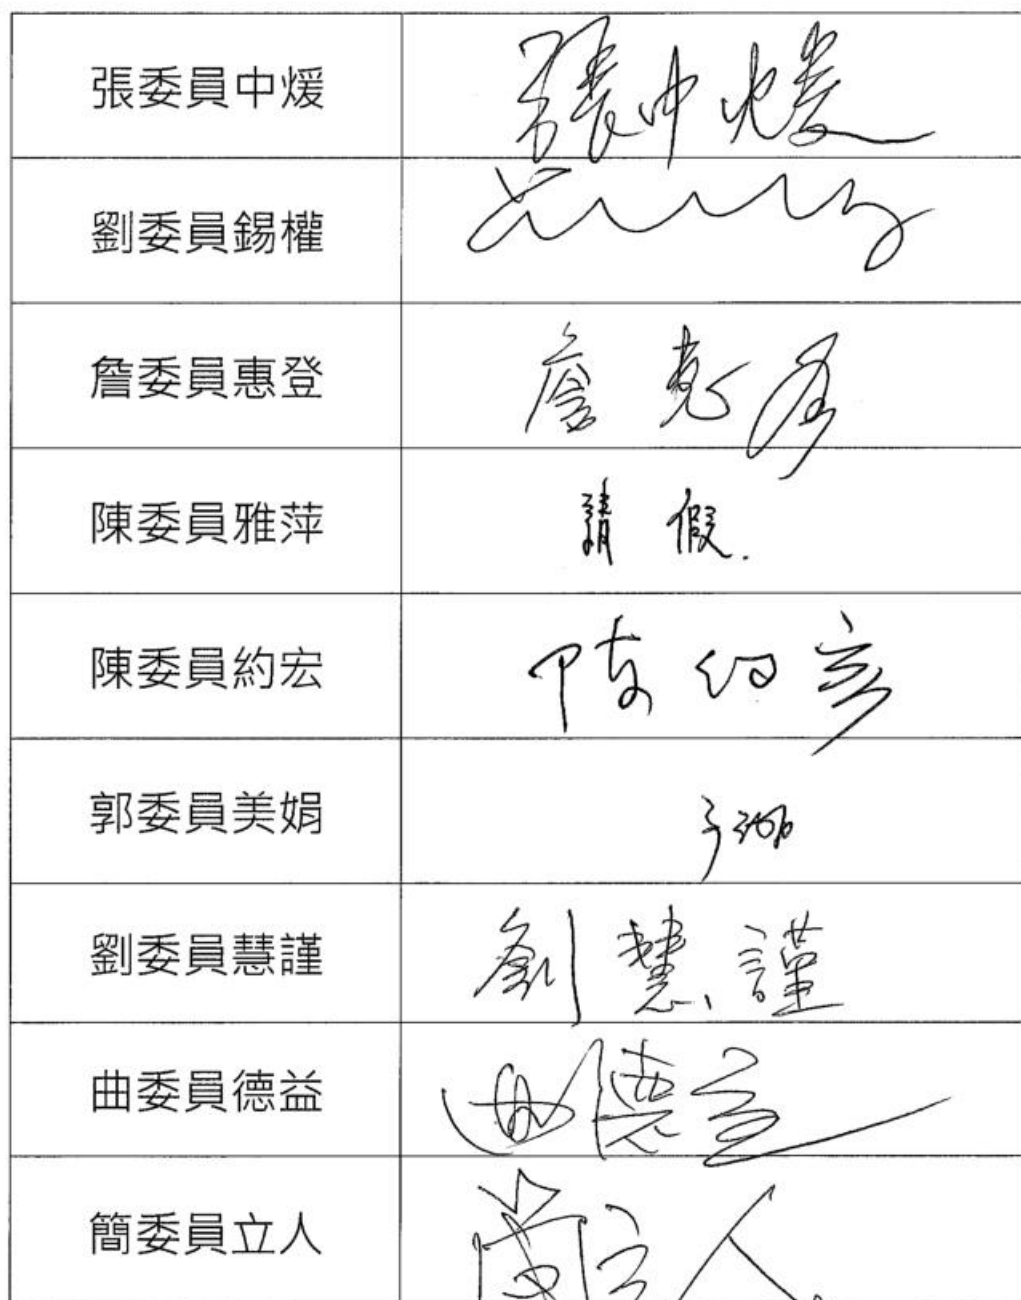 張委員中煖 張中煖
劉委員錫權
詹委員惠登 詹惠登
陳委員雅萍 請假.
陳委員約宏 陳約宏
郭委員美娟
劉委員慧謹 劉慧謹
曲委員德益 曲德益
簡委員立人 簡立人